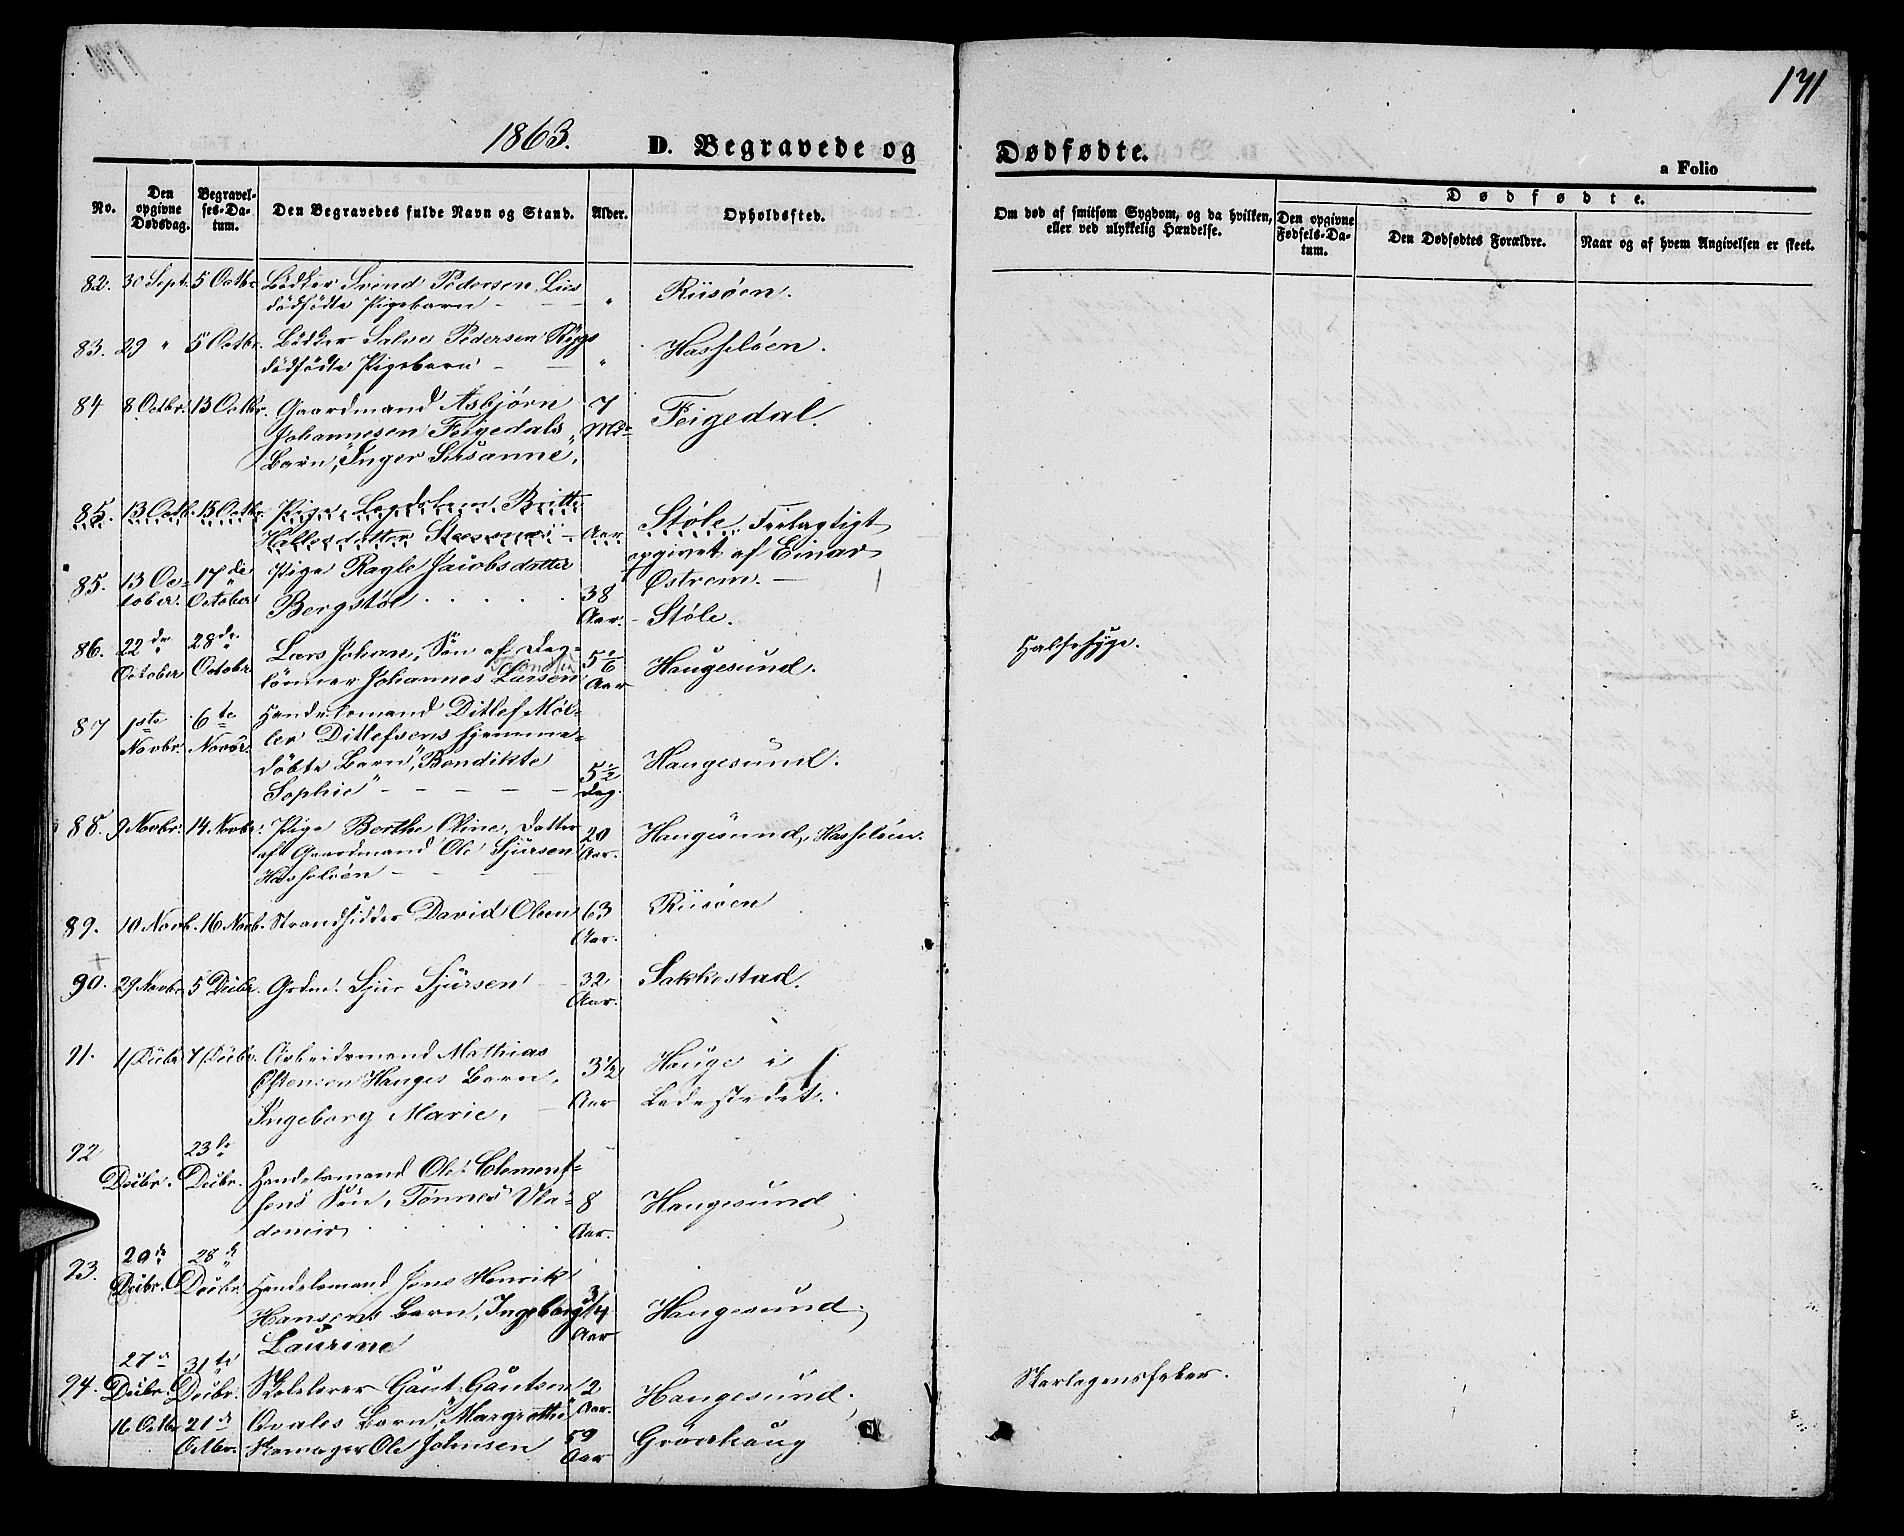 171
1863. D. Begravede og Dødfødte.
a Folio
No.
Den opgivne Dødsdag.
Begravelses-Datum.
Den Begravedes fulde Navn og Stand.
Alder.
Opholdssted.
Om død af smitsom Sygdom, og da hvilken, eller ved ulykkelig Hændelse.
Dødfødte.
Den opgivne Fødsels-Datum.
Den Dødfødtes Forældre.
Naar og af hvem Angivelsen er skeet.
82. 30 Sept. 5 Octbr. Bødker Svend Pedersen Lies
dödfödte Pigebarn – — „ Riisøen.
83. 29 " 5 Octbr. Bödker Salve Pedersen Rygs
dödfödte Pigebarn – — „ Hasseløen.
84 8 Octbr. 13 Octbr. Gaardmand Asbjørn 7
Johannesen Feigedals Mdr Feigedal.
Barn, "Inger Susanne,
85. 13 Octb. 15 Octbr. Pige, Lægdslem Britte
Hallesdatter Aar Støle. Feilagtigt
opgivet af Einar
Østrem. —
85. 13 October. 17de October Pige Ragle Jacobsdatter
Bergstøl . . . . . 38 Aar. – Støle.
86. 22de October 28de October Lars Johan, Sön af Dag-
lönner Johannes Larsen 5 1/6 Aar Haugesund. Halsesyge.
87 1ste Novbr. 6te Novbr. Handelsmand Ditlef Møl-
ler Ditlefsens hjemme-
döbte Barn, "Bendikte
Sophie" – – – – – 5 1/2 Dag. Haugesund.
88. 9 Novbr. 14 Novbr. Pige Berthe Oline, Datter
af Gaardmand Ole Sjursen
Hasseløen – – – – 20 Aar. Haugesund, Hasseløen.
89. 10 Novb. 16 Novb. Strandsidder David Olsen 63 Aar. Riisøen
90. 29 Novbr. 5 Decbr. Grdm. Sjur Sjursen 32 Aar. Sakkestad.
91. 1 Decbr 7 Decbr. Arbeidsmand Mathias
Østensen Hauges Barn,
Ingeborg Marie, – 3 1/2 Aar Hauge i
Ladestedet.
92 Decbr. 23de Decbr. Handelsmand Ole Clement-
sens Sön, Tønnes Vla-
demir . . . . . 8 Aar. Haugesund
93. 20de Decbr. 28de Decbr. Handelsmand Jens Henrik
Hansens Barn, Ingeborg
Laurine 3/4 Aar Haugesund.
94. 27de Decbr. 31te Decbr. Skolelærer Gaut Gautsen
Qvales Barn, "Margrethe" 2 Aar. Haugesund. Skarlagensfeber.
16 Octbr 21de Octbr. Skomager Ole Johnsen 59 Aar Grønhaug